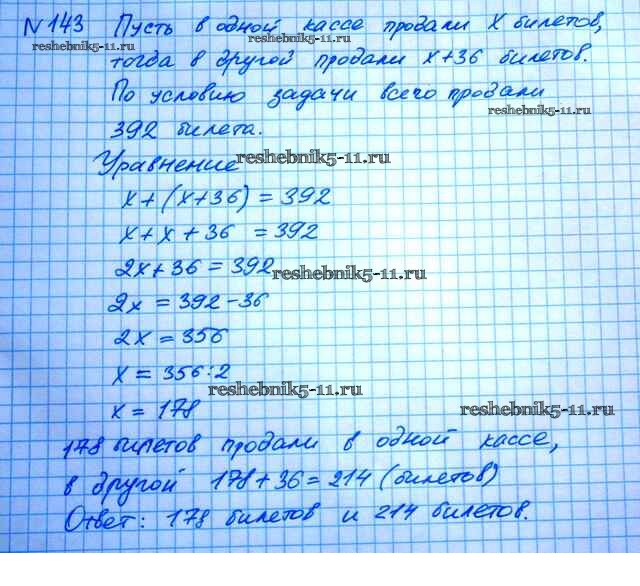 № 143 Пусть в одной кассе продали х билетов,
reshebnik5-11.ru reshebnik5-11.ru
тогда в другой продали х+36 билетов.
По условию задачи всего продали
reshebnik5-11.ru
392 билета.
Уравнение
reshebnik5-11.ru
х+(х+36) = 392
х+х+36 = 392
2х+36 = 392
reshebnik5-11.ru
2х = 392-36
2х = 356
х = 356:2
reshebnik5-11.ru
х = 178
reshebnik5-11.ru
178 билетов продали в одной кассе,
в другой 178+36=214 (билетов)
Ответ: 178 билетов и 214 билетов.